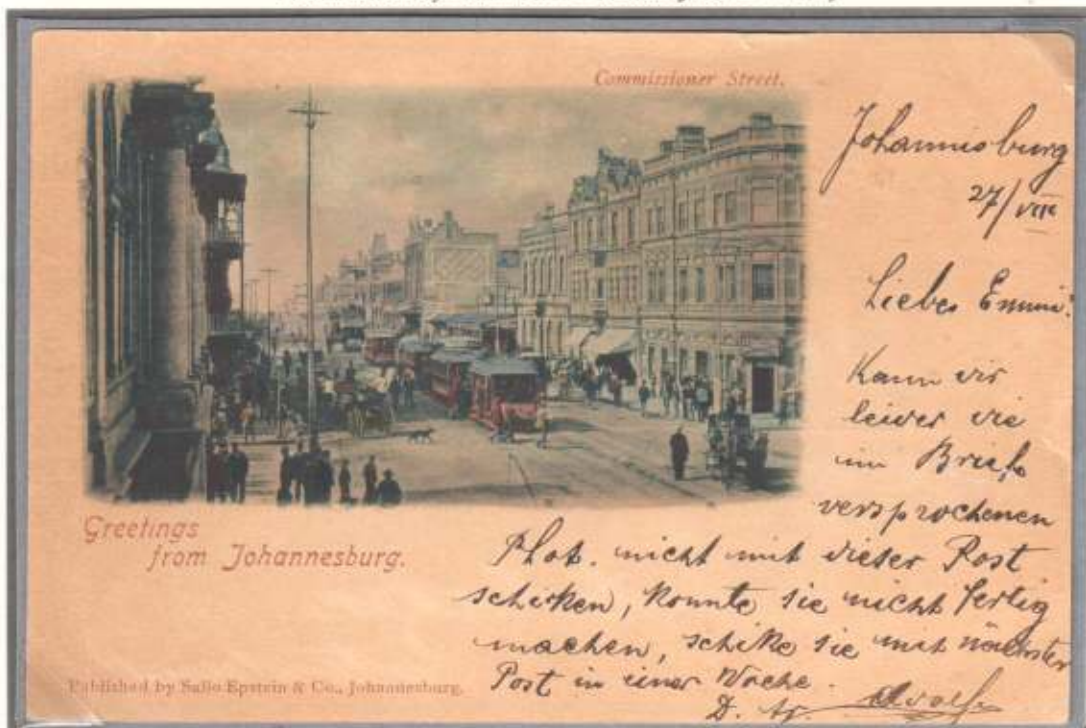 Commissioner Street.
Johannisburg
27/VIII
Liebes Emmi!
Kann dir
leider die
im Briefe
versprochenen
Phot. nicht mit dieser Post
schicken, konnte sie nicht fertig
machen, schike sie mit nächster
Post in einer Woche.
D. tr. Adolf
Greetings
from Johannesburg.
Published by Sallo Epstein & Co., Johannesburg.